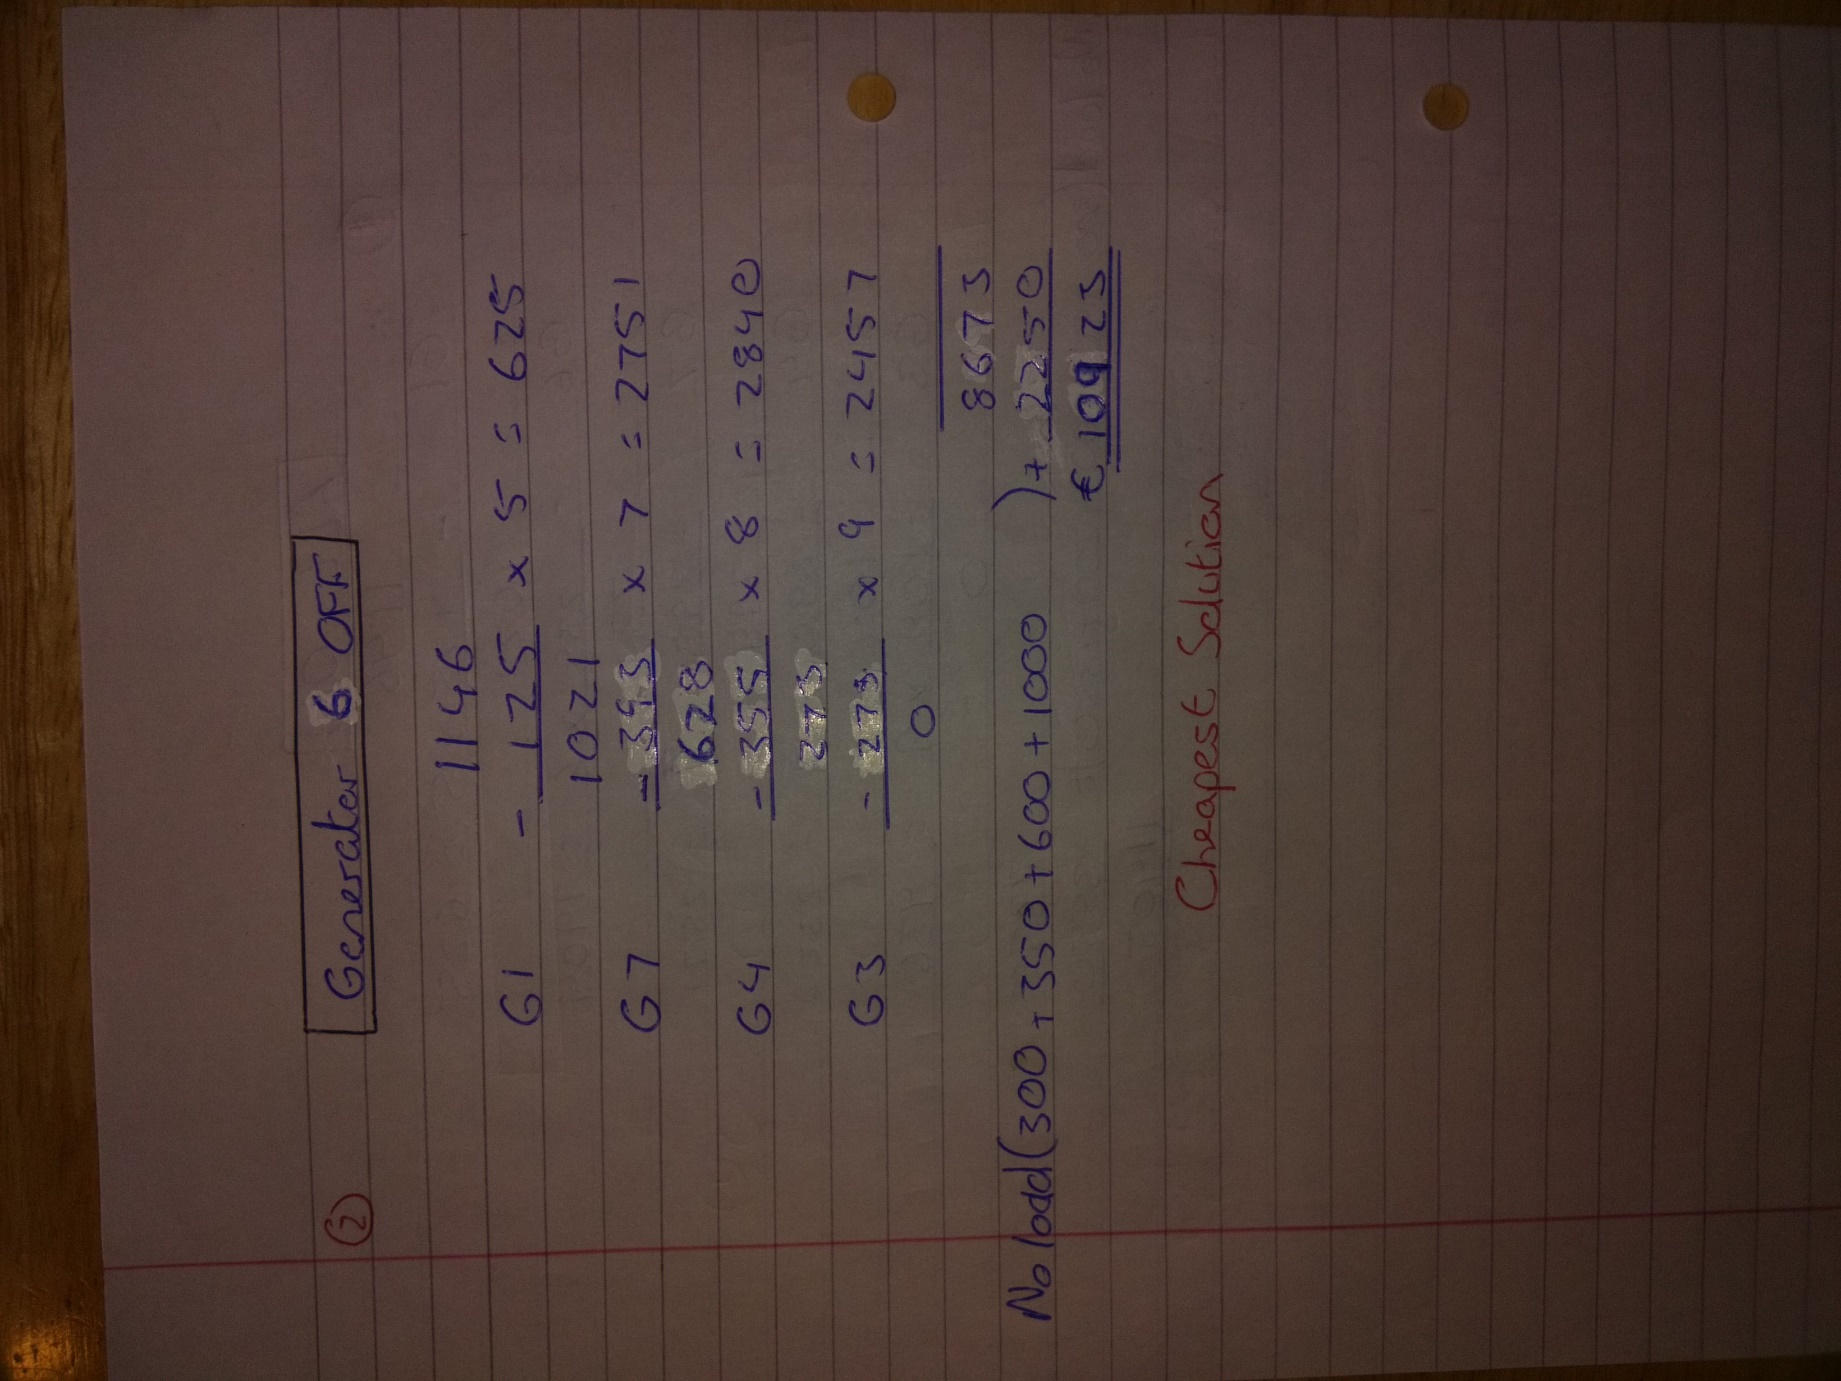 ② Generator 6 OFF
1146
G1 - 125 x 5 = 625
1021
G7 - 393 x 7 = 2751
628
G4 - 355 x 8 = 2840
273
G3 - 273 x 9 = 2457
0
8673
No load (300 + 350 + 600 + 1000 ) + 2250
€ 10923
Cheapest Solution